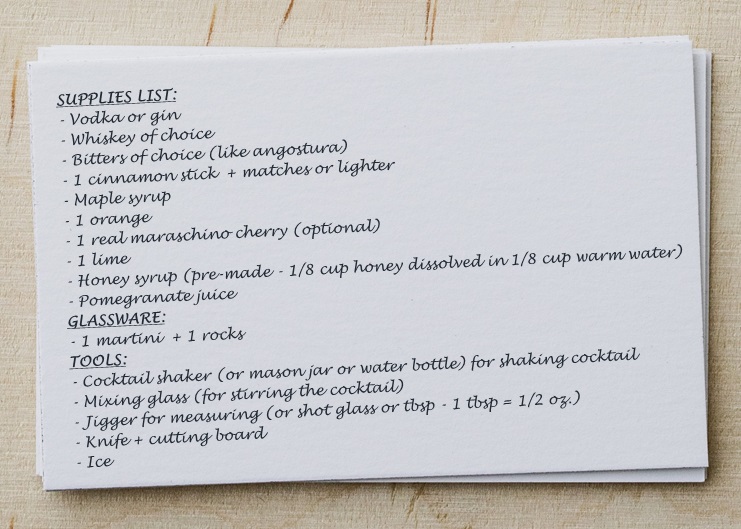 SUPPLIES LIST:
- Vodka or gin
- Whiskey of choice
- Bitters of choice (like angostura)
- 1 cinnamon stick + matches or lighter
- Maple syrup
- 1 orange
- 1 real maraschino cherry (optional)
- 1 lime
- Honey syrup (pre-made - 1/8 cup honey dissolved in 1/8 cup warm water)
- Pomegranate juice
GLASSWARE:
- 1 martini + 1 rocks
TOOLS:
- Cocktail shaker (or mason jar or water bottle) for shaking cocktail
- Mixing glass (for stirring the cocktail)
- Jigger for measuring (or shot glass or tbsp - 1 tbsp = 1/2 oz.)
- Knife + cutting board
- Ice